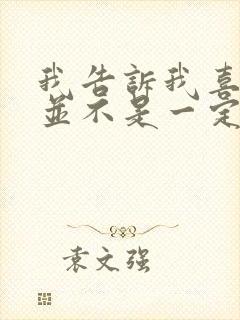 我告訴我喜
並不是一定
袁文强